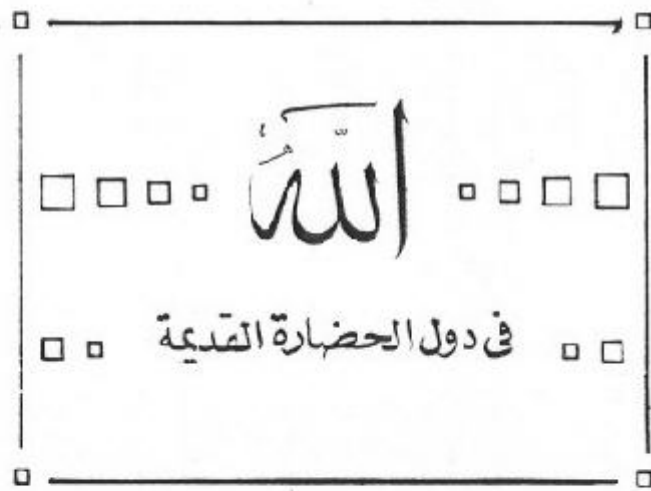 الله
في دول الحضارة القديمة